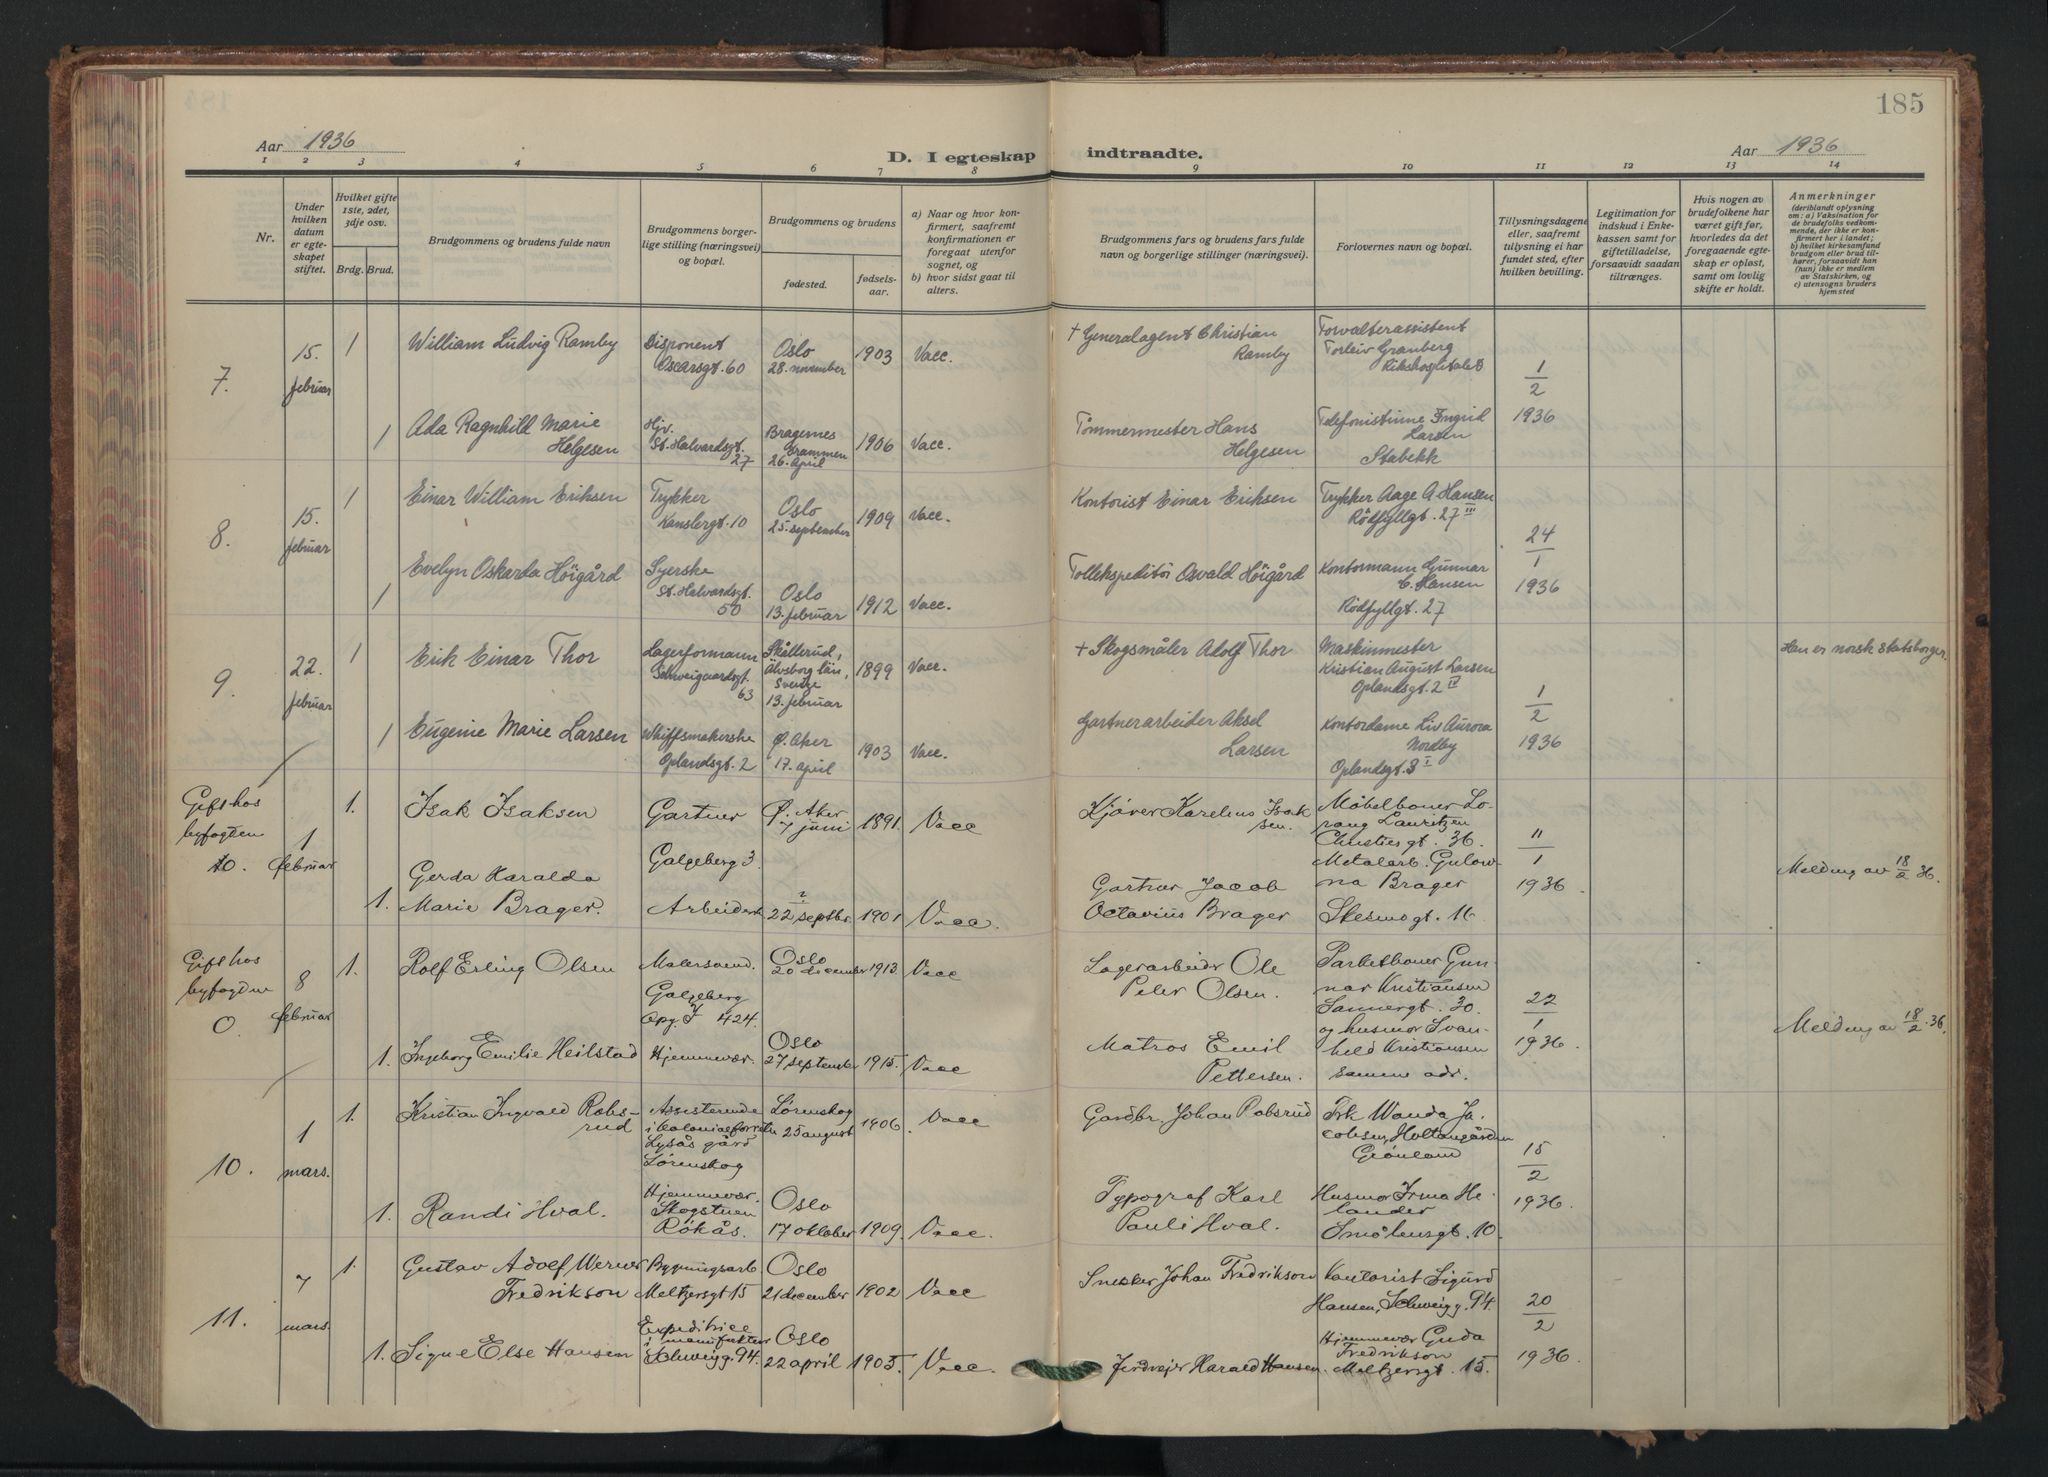 185
Aar 1936
D. I egteskap indtraadte.
Aar 1936
1 2 3 4 5 6 7 8 9 10 11 12 13 14
Nr.
Under
hvilken
datum
er egte-
skapet
stiftet.
Hvilket gifte
1ste, 2det,
3dje osv.
Brdg. Brud.
Brudgommens og brudens fulde navn
Brudgommens borger-
lige stilling (næringsvei)
og bopæl.
Brudgommens og brudens
fødested.
fødsels-
aar.
a) Naar og hvor kon-
firmert, saafremt
konfirmationen er
foregaat utenfor
sognet, og
b) hvor sidst gaat til
alters.
Brudgommens fars og brudens fars fulde
navn og borgerlige stillinger (næringsvei).
Forlovernes navn og bopæl.
Tillysningsdagene
eller, saafremt
tillysning ei har
fundet sted, efter
hvilken bevilling.
Legitimation for
indskud i Enke-
kassen samt for
giftetilladelse,
forsaavidt saadan
tiltrænges.
Hvis nogen av
brudefolkene har
været gift før,
hvorledes da det
foregaaende egte-
skap er opløst,
samt om lovlig
skifte er holdt.
Anmerkninger
(deriblandt oplysning
om: a) Vaksination for
de brudefolks vedkom-
mende, der ikke er kon-
firmert her i landet;
b) hvilket kirkesamfund
brudgom eller brud til-
hører, forsaavidt han
(hun) ikke er medlem
av Statskirken, og
c) utensogns bruders
hjemsted
7.
15.
februar
1
William Ludvig Ramby
Disponent
Oscarsgt. 60
Oslo
28. november
1903
Vacc.
+ Generalagent Christian
Ramby
Forvalterassistent
Torleiv Granberg
Rikshospitalet
1
2
1936
1
Ada Ragnhild Marie
Helgesen
Hjv.
St. Halvardsgt.
27
Bragernes
Drammen
26. april
1906
Vacc.
Tømmermester Hans
Helgesen
Telefonistinne Ingrid
Larsen
Stabekk
8.
15.
februar
1
Einar William Eriksen
Trykker
Kanslergt. 10
Oslo
25. september
1909
Vacc.
Kontorist Einar Eriksen
Trykker Aage A Hansen
Rödfyllgt. 27 III
24
1
1936
1
Evelyn Oskarda Höigård
Syerske
St. Halvardsgt.
50
Oslo
13. februar
1912
Vacc.
Tollekspeditör Osvald Höigård
Kontormann Gunnar
C. Hansen
Rödfyllgt. 27
9.
22.
februar
1
Erik Einar Thor
Lagerformann
Schweigaardsgt.
63
Skållerud,
Älvsborg län,
Sverige
13. februar
1899
Vacc.
+ Skogsmåler Adolf Thor
Maskinmester
Kristian August Larsen
Oplandsgt. 2 IV
1
2
1936
Han er norsk statsborger.
1
Eugenie Marie Larsen
Oplandsgt. 2
Ø. Aker
17. april
1903
Vacc.
Gartnerarbeider Aksel
Larsen
Kontordame Liv Aurora
Nordby
Oplandsgt. 3 I
Gift hos
byfogden
10.
1
februar
1.
Isak Isaksen
Gartner
Galgeberg 3.
Ø. Aker
7 juni
1891.
Vacc
Kjører Karelius Isak
sen.
Møbelboner Lo-
rang Lauritzen
Christiesgt. 36.
11
1
1936
Melding av 18/2 36.
1.
Gerda Haralda
Marie Brager.
Arbeiderske
?
22 septbr.
1901
Vacc.
Gartner Jacob
Octavius Brager
Metalarb. Gulow-
na Brager
Skesmogt. 16
Gift hos
byfogden
0.
8
februar
1.
Rolf Erling Olsen
Malersvend.
Galgeberg
Opg. I 424.
Oslo
20 december
1913.
Vacc
Lagerarbeider Ole
Peter Olsen.
Parketboner Gun-
nar Kristiansen
Sannergt. 30.
22
1
1936.
Melding av 18/2 . 36.
1.
Ingeborg Emilie Heilstad
Hjemmevær.
Oslo
27 september
1915.
Vacc
Matros Emil
Pettersen.
og husmor Svan-
hild Kristiansen
samme adr.
10.
1
mars.
1.
Kristian Ingvald Robs-
rud
Assisterende
i kolonialforretn
Lysås gård
Lørenskog
Lørenskog
25 august
1906.
Vacc
Gardbr. Johan Robsrud
Frk Wanda Ja-
cobsen, Holtangården
Grönland
15
2
1936.
1.
Randi Hval.
Hjemmevær.
Skogstuen
Røkås.
Oslo
17 oktober
1909.
Vacc.
Typograf Karl
Pauli Hval.
Husmor Irma He-
lander
Smålensgt. 10.
11.
7
mars.
1.
Gustav Adolf Werner
Fredrikson
Bygningsarb.
Meltzersgt 15
Oslo
21 december
1902
Vacc
Snekker Johan Fredrikson
Kontorist Sigurd
Hansen, Schweigg. 94.
20
2
1936.
1.
Signe Else Hansen
Expeditrice
i manufaktur
Schweigg. 94.
Oslo
22 april
1905.
Vacc.
Harald Hansen.
Hjemmevær Guda
Fredrikson
Meltzersgt. 15.